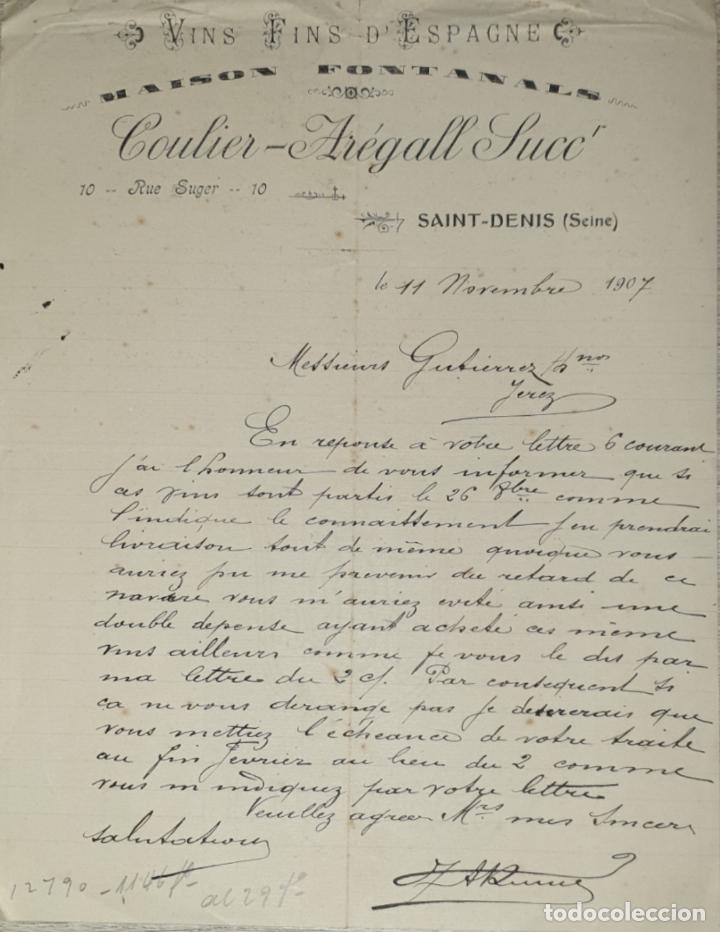 VINS FINS D'ESPAGNE
MAISON FONTANALS
Coulier-Arégall Succr
10 -- Rue Suger -- 10
SAINT-DENIS (Seine)
le 11 Novembre 1907
Messieurs Gutierrez Hnos
Jerez
En reponse à votre lettre 6 courant
j'ai l'honneur de vous informer que si
ces vins sont partis le 26 8bre comme
l'indique le connaissement j'en prendrai
livraison tout de même quoique vous
auriez pu me prevenir du retard de ce
navire vous m'auriez evité ainsi une
double depense ayant acheté ces même
vins ailleurs comme je vous le dis par
ma lettre du 2 c/. Par consequent si
ça ne vous derange pas je desirerais que
vous mettiez l'écheance de votre traite
au fin fevrier au lieu du 2 comme
vous m'indiquez par votre lettre
Veuillez agreer Mrs mes sinceres
salutations
12790 - 1146 fs - al 29 fo
todocoleccion
todocoleccion.net